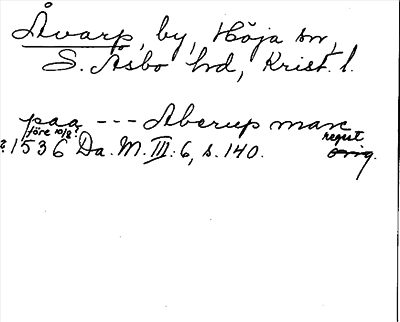 Åvarp, by, Höja sn,
S. Åsbo hd, Krist. l.
paa --- Aberup marc
före 10/8? regest
? 1536 Da. M. III: 6, s. 140. orig.